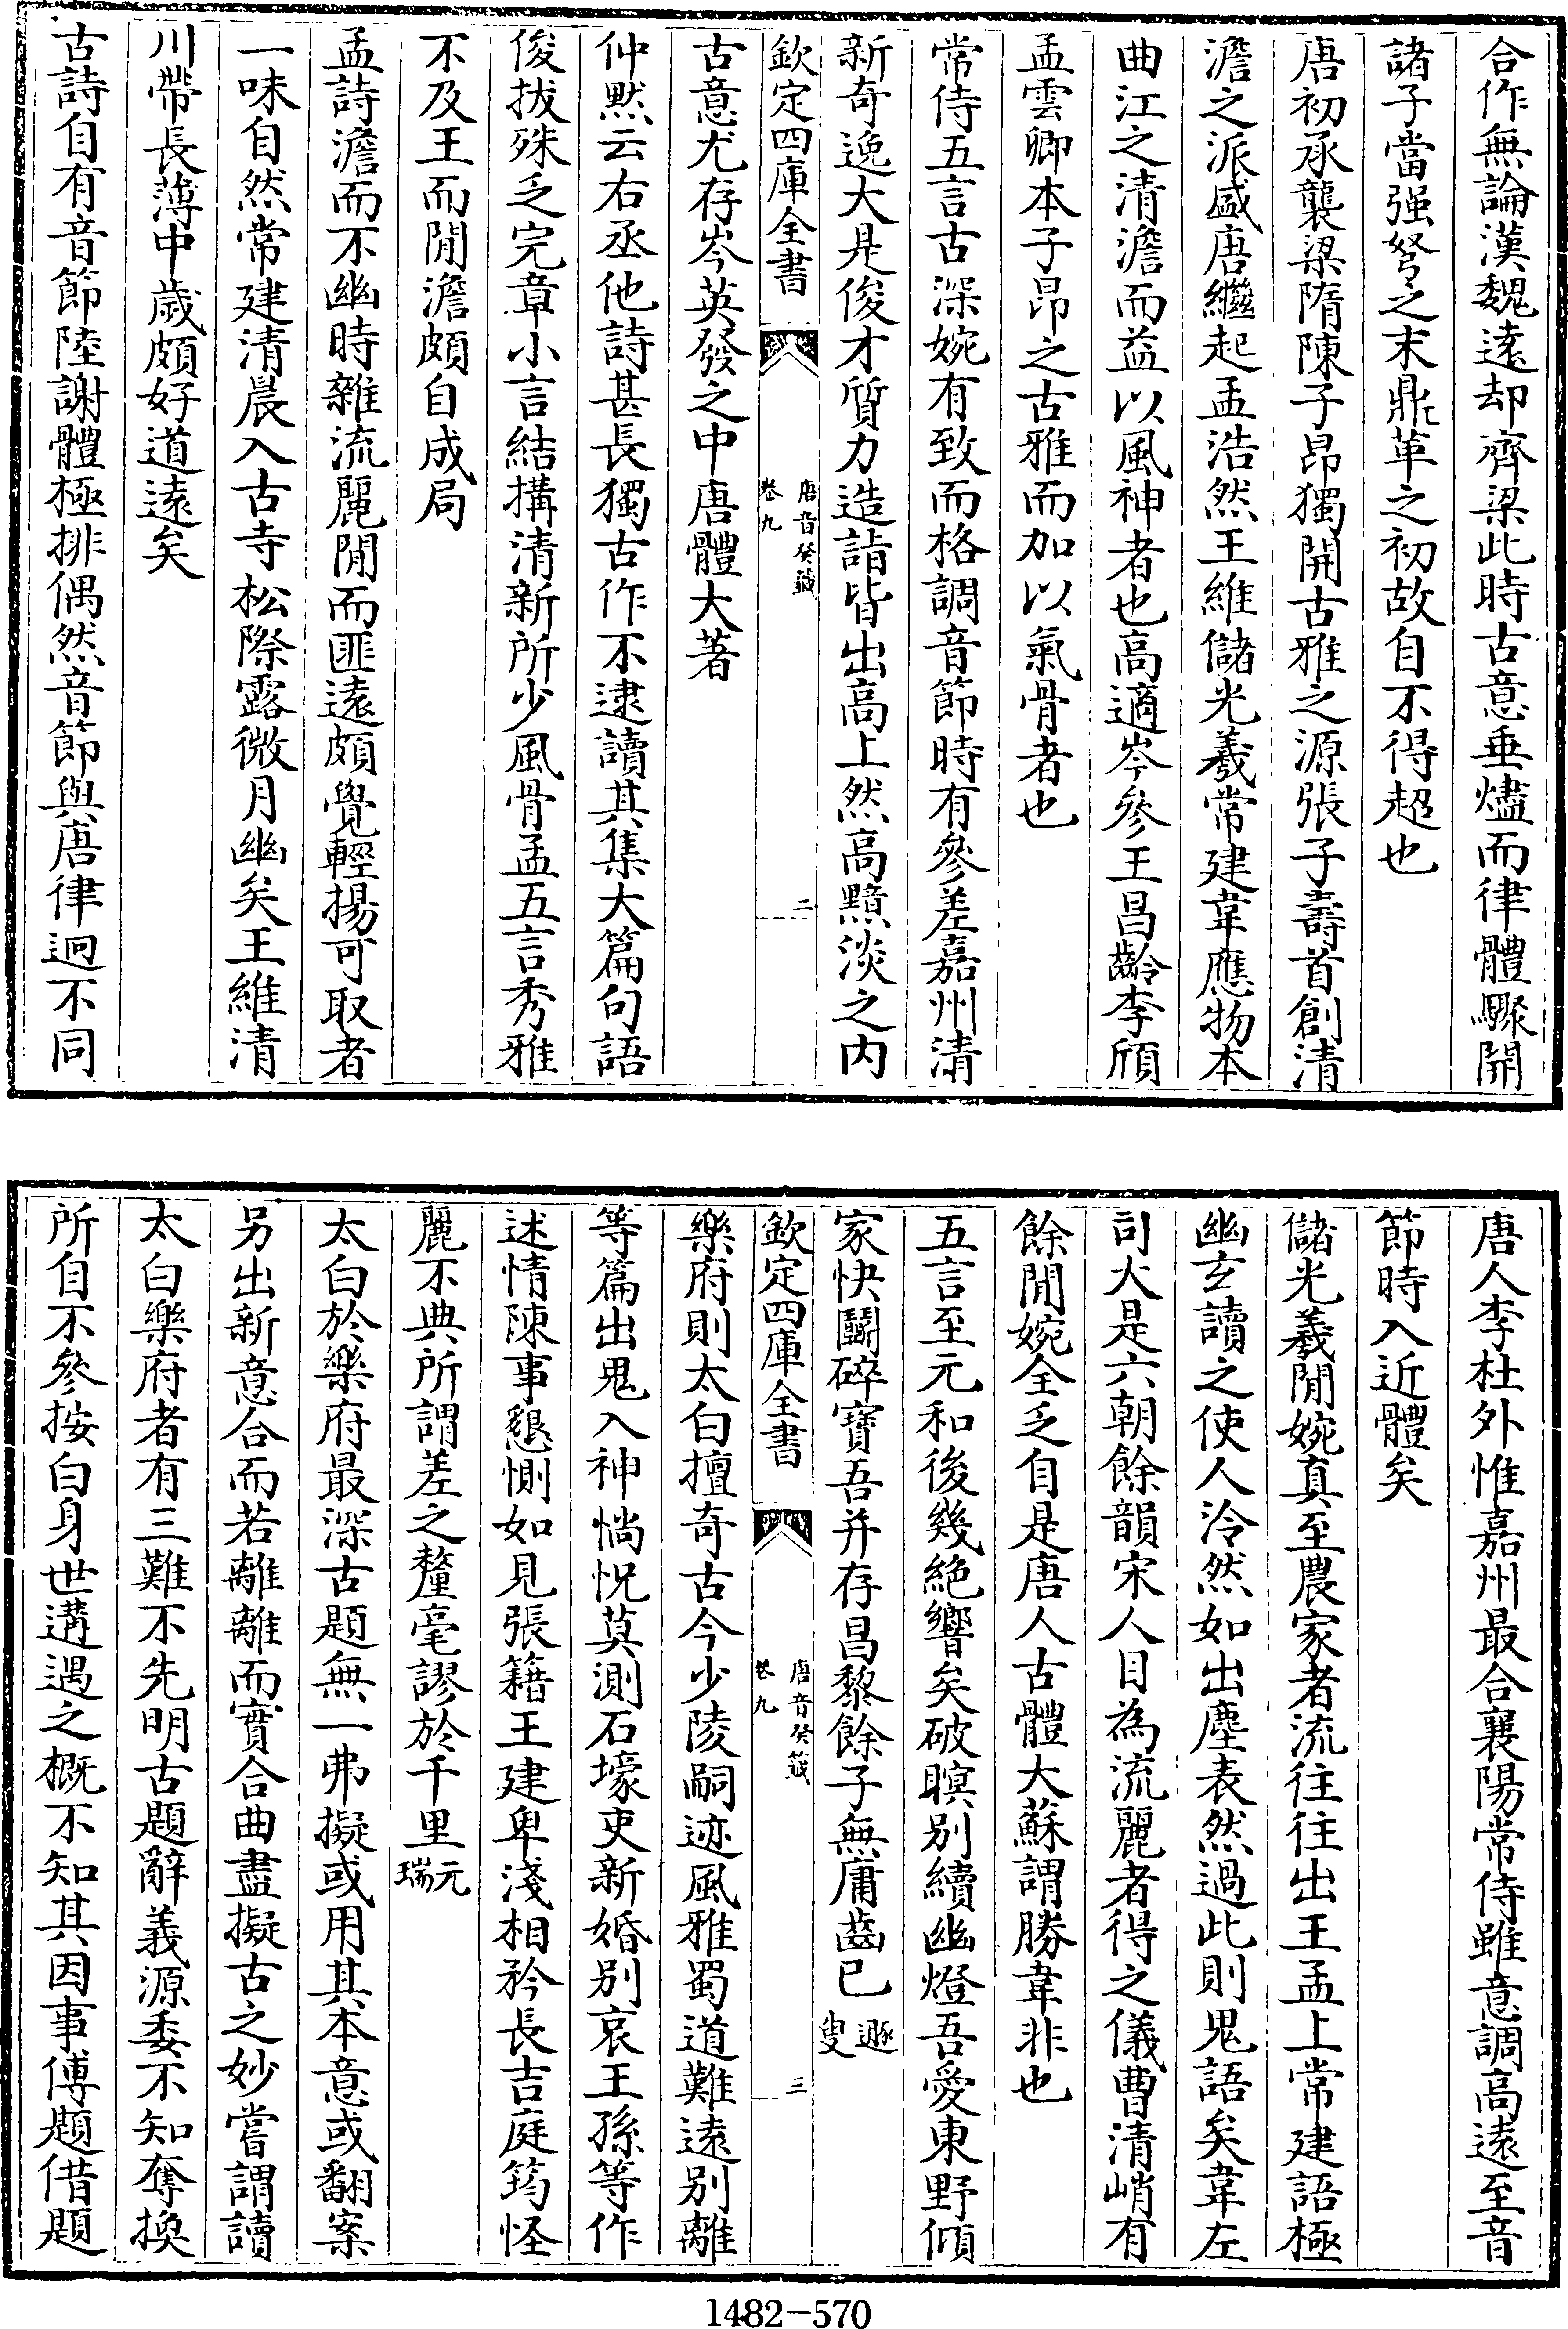 合作無論漢魏遠却齊梁此時古意垂燼而律體驟開
諸子當强弩之末鼎革之初故自不得超也
唐初承襲梁隋陳子昂獨開古雅之源張子壽首創清
澹之派盛唐繼起孟浩然王維儲光羲常建韋應物本
曲江之清澹而益以風神者也高適岑參王昌齡李頎
孟雲卿本子昂之古雅而加以氣骨者也
常侍五言古深婉有致而格調音節時有參差嘉州清
新奇逸大是俊才質力造詣皆出高上然高黯淡之内
欽定四庫全書
唐音癸籖
卷九
二
古意尤存岑英發之中唐體大著
仲黙云右丞他詩甚長獨古作不逮讀其集大篇句語
俊拔殊乏完章小言結搆清新所少風骨孟五言秀雅
不及王而閒澹頗自成局
孟詩澹而不幽時雜流麗閒而匪遠頗覺輕揚可取者
一味自然常建清晨入古寺松際露微月幽矣王維清
川帶長薄中歲頗好道遠矣
古詩自有音節陸謝體極排偶然音節與唐律迥不同
唐人李杜外惟嘉州最合襄陽常侍雖意調高遠至音
節時入近體矣
儲光羲閒婉真至農家者流往往出王孟上常建語極
幽玄讀之使人泠然如出塵表然過此則鬼語矣韋左
司大是六朝餘韻宋人目為流麗者得之儀曹清峭有
餘閒婉全乏自是唐人古體大蘇謂勝韋非也
五言至元和後幾絶響矣破瞑别續幽燈吾愛東野傾
家快鬭碎寶吾并存昌黎餘子無庸齒已遯叟
欽定四庫全書
唐音癸籖
卷九
三
樂府則太白擅奇古今少陵嗣迹風雅蜀道難遠别離
等篇出鬼入神惝怳莫測石壕吏新婚别哀王孫等作
述情陳事懇惻如見張籍王建卑淺相矜長吉庭筠怪
麗不典所謂差之釐毫謬於千里元瑞
太白於樂府最深古題無一弗擬或用其本意或翻案
另出新意合而若離離而實合曲盡擬古之妙嘗謂讀
太白樂府者有三難不先明古題辭義源委不知奪換
所自不參按白身世遘遇之概不知其因事傅題借題
1482-570